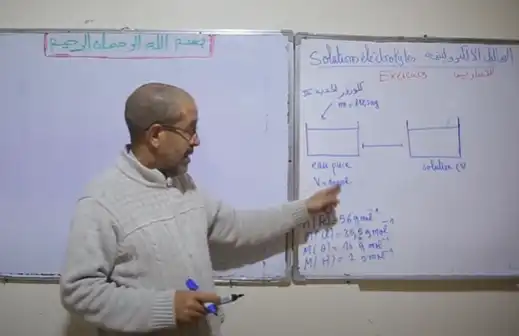 بسم الله الرحمان الرحيم
Solutions électrolytes المحاليل الالكتروليتية
Exercices التمارين
كلورور الحديد III
eau pure
solution (V)
M(Fe) = 56 g mol⁻¹
M(Cl) = 35,5 g mol⁻¹
M(O) = 16 g mol⁻¹
M(H) = 1 g mol⁻¹